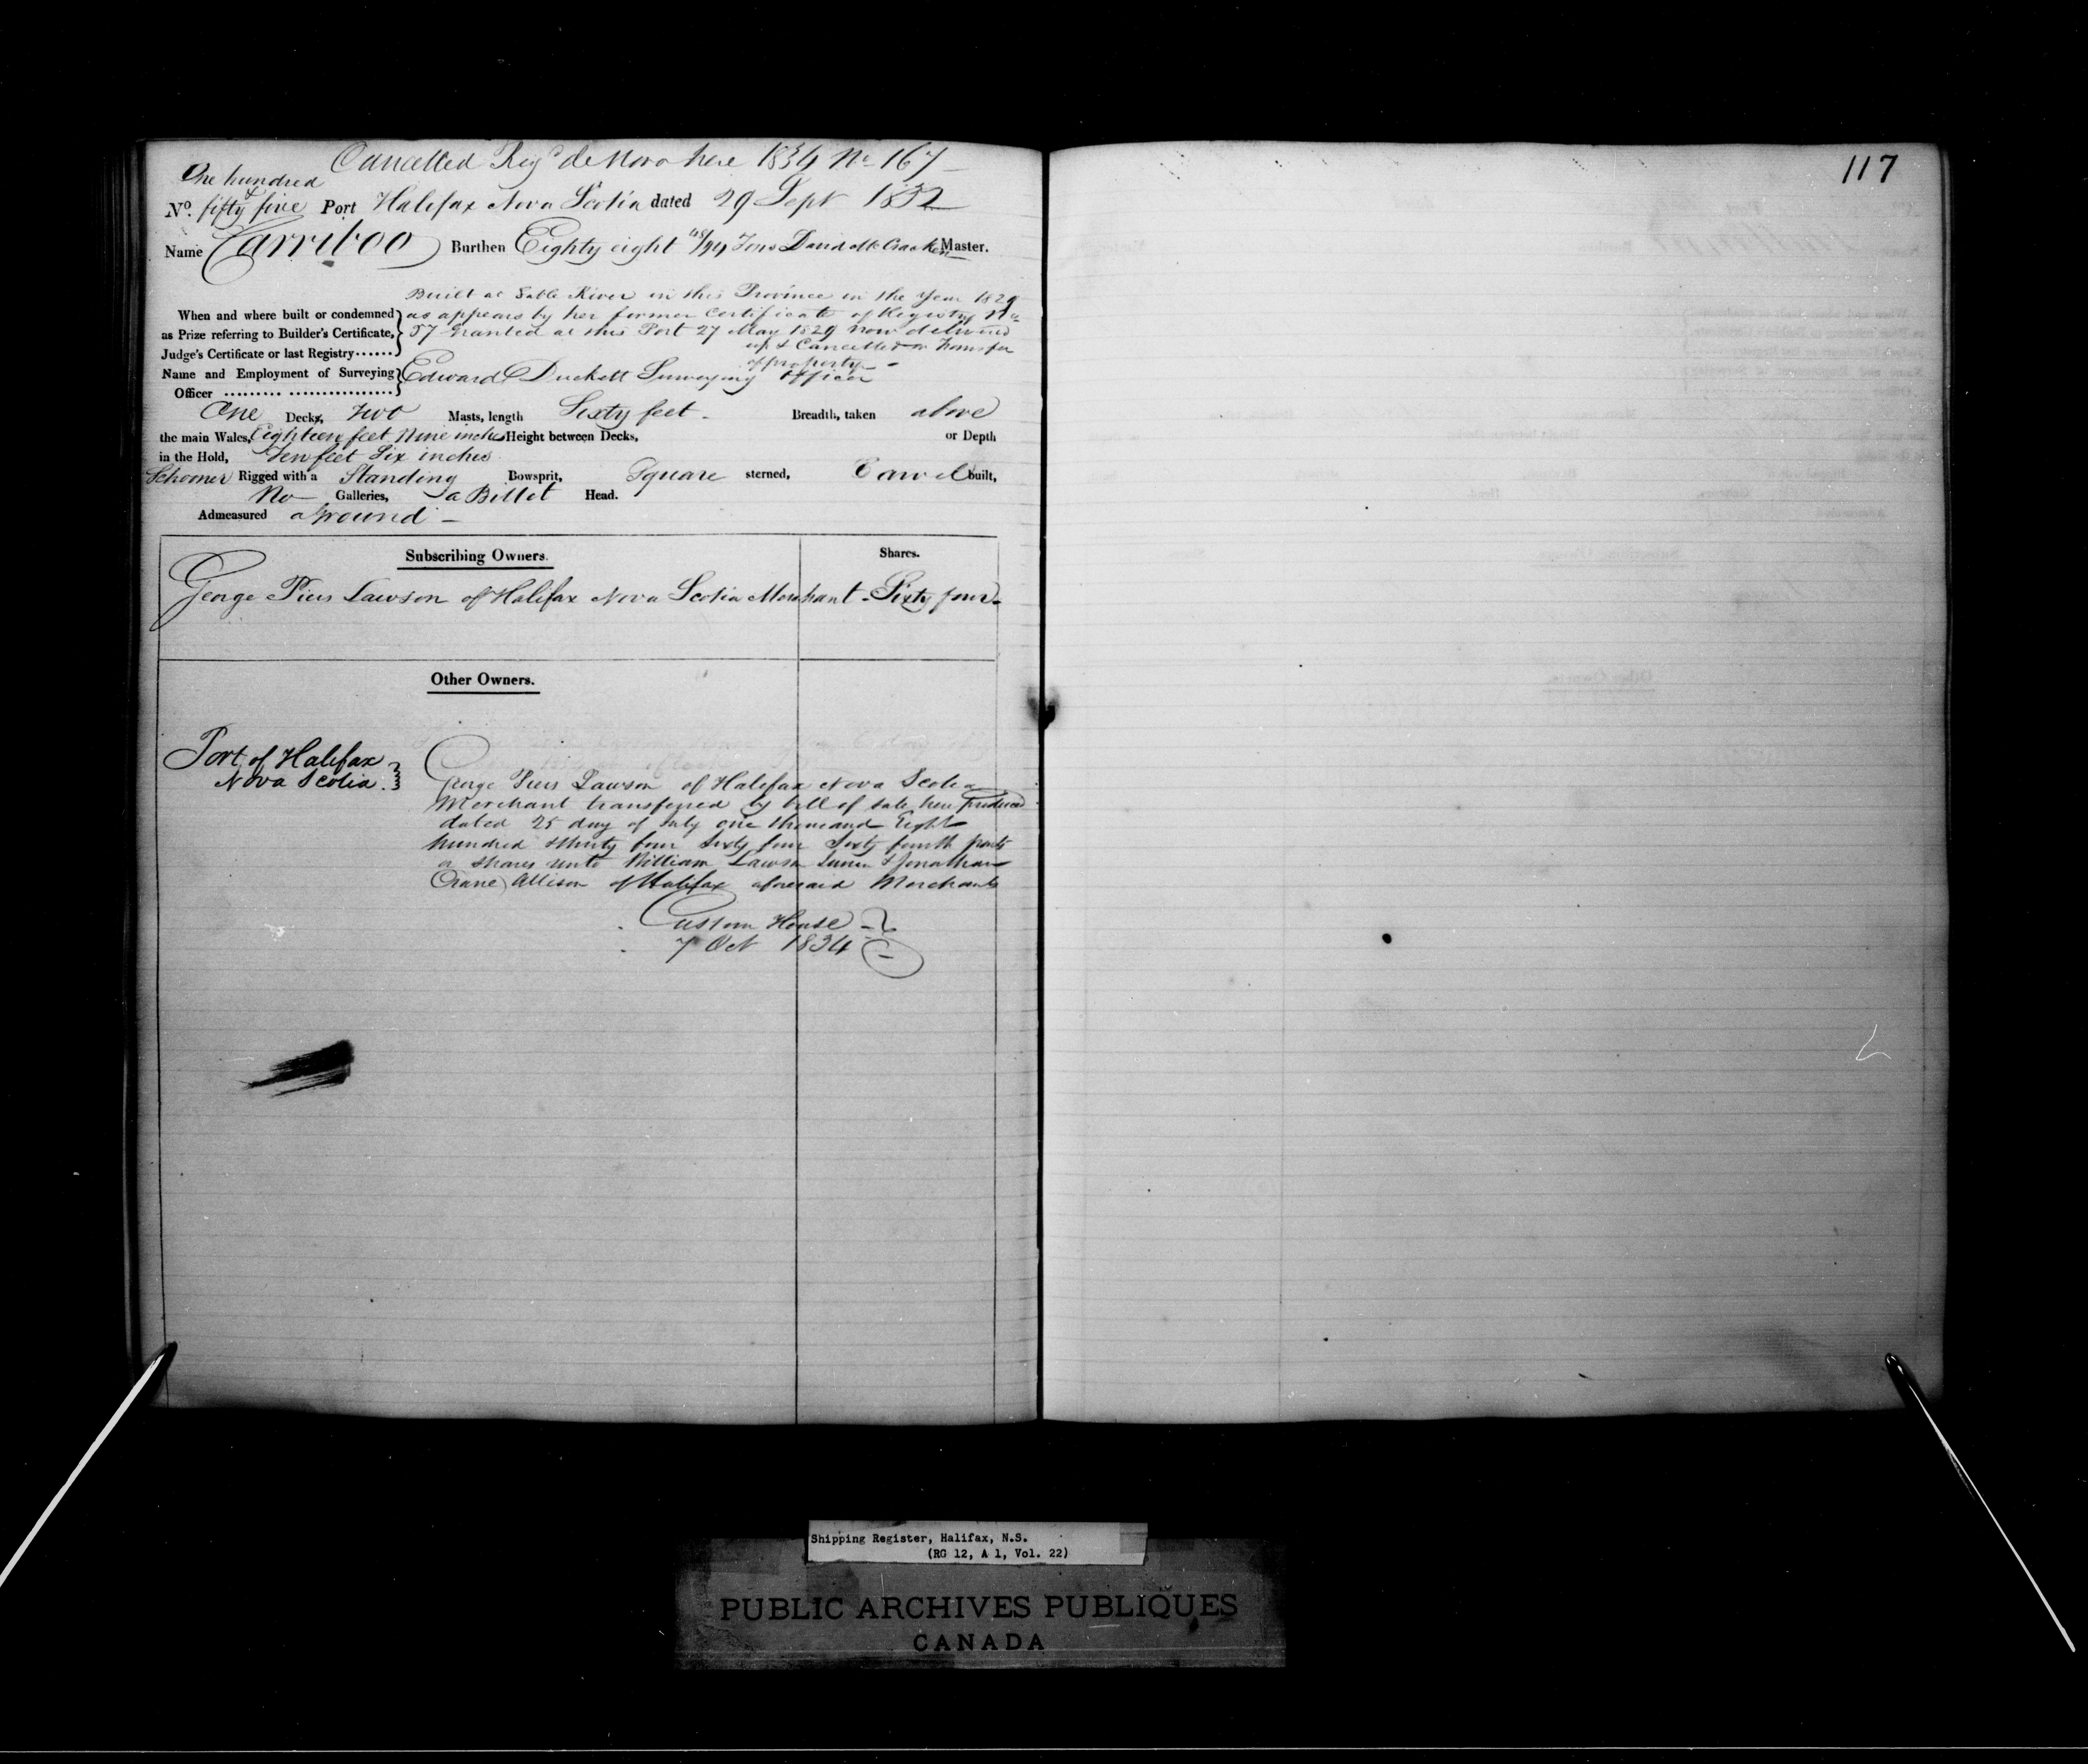 Cancelled Regd de Novo here 1834 No 167
117
One hundred
No. & fifty five Port Halifax Nova Scotia dated 29 Sept 1832
Name Carriboo Burthen Eighty eight /94 Tons David McCracken Master.
Built at Sable River in this Province in the Year 1829
When and where built or condemned as appears by her former Certificate of Registry No
as Prize referring to Builder's Certificate, 57 Granted at this Port 27 May 1829 now delivered
Judge's Certificate or last Registry...... up & Cancelled on Transfer
of property
Name and Employment of Surveying Edward Duckett Surveying Officer
Officer
One Decks, Two Masts, length Sixty feet Breadth, taken above
the main Wales, Eighteen feet Nine inches Height between Decks, or Depth
in the Hold, Ten feet Six inches
Schooner Rigged with a Standing Bowsprit, Square sterned, Carvel built,
No Galleries, a Billet Head.
Admeasured aground
Subscribing Owners. Shares.
George Piers Lawson of Halifax Nova Scotia Merchant - Sixty four
Other Owners.
Port of Halifax
Nova Scotia
George Piers Lawson of Halifax Nova Scotia
Merchant transferred by bill of sale here produced
dated 25 day of July one thousand Eight
hundred & thirty four Sixty four Sixty fourth parts
or shares unto William Lawson Junr & Jonathan
Crane Allison of Halifax aforesaid Merchants
Custom House
7 Oct 1834
Shipping Register, Halifax, N.S.
(RG 12, A 1, Vol. 22)
PUBLIC ARCHIVES PUBLIQUES
CANADA